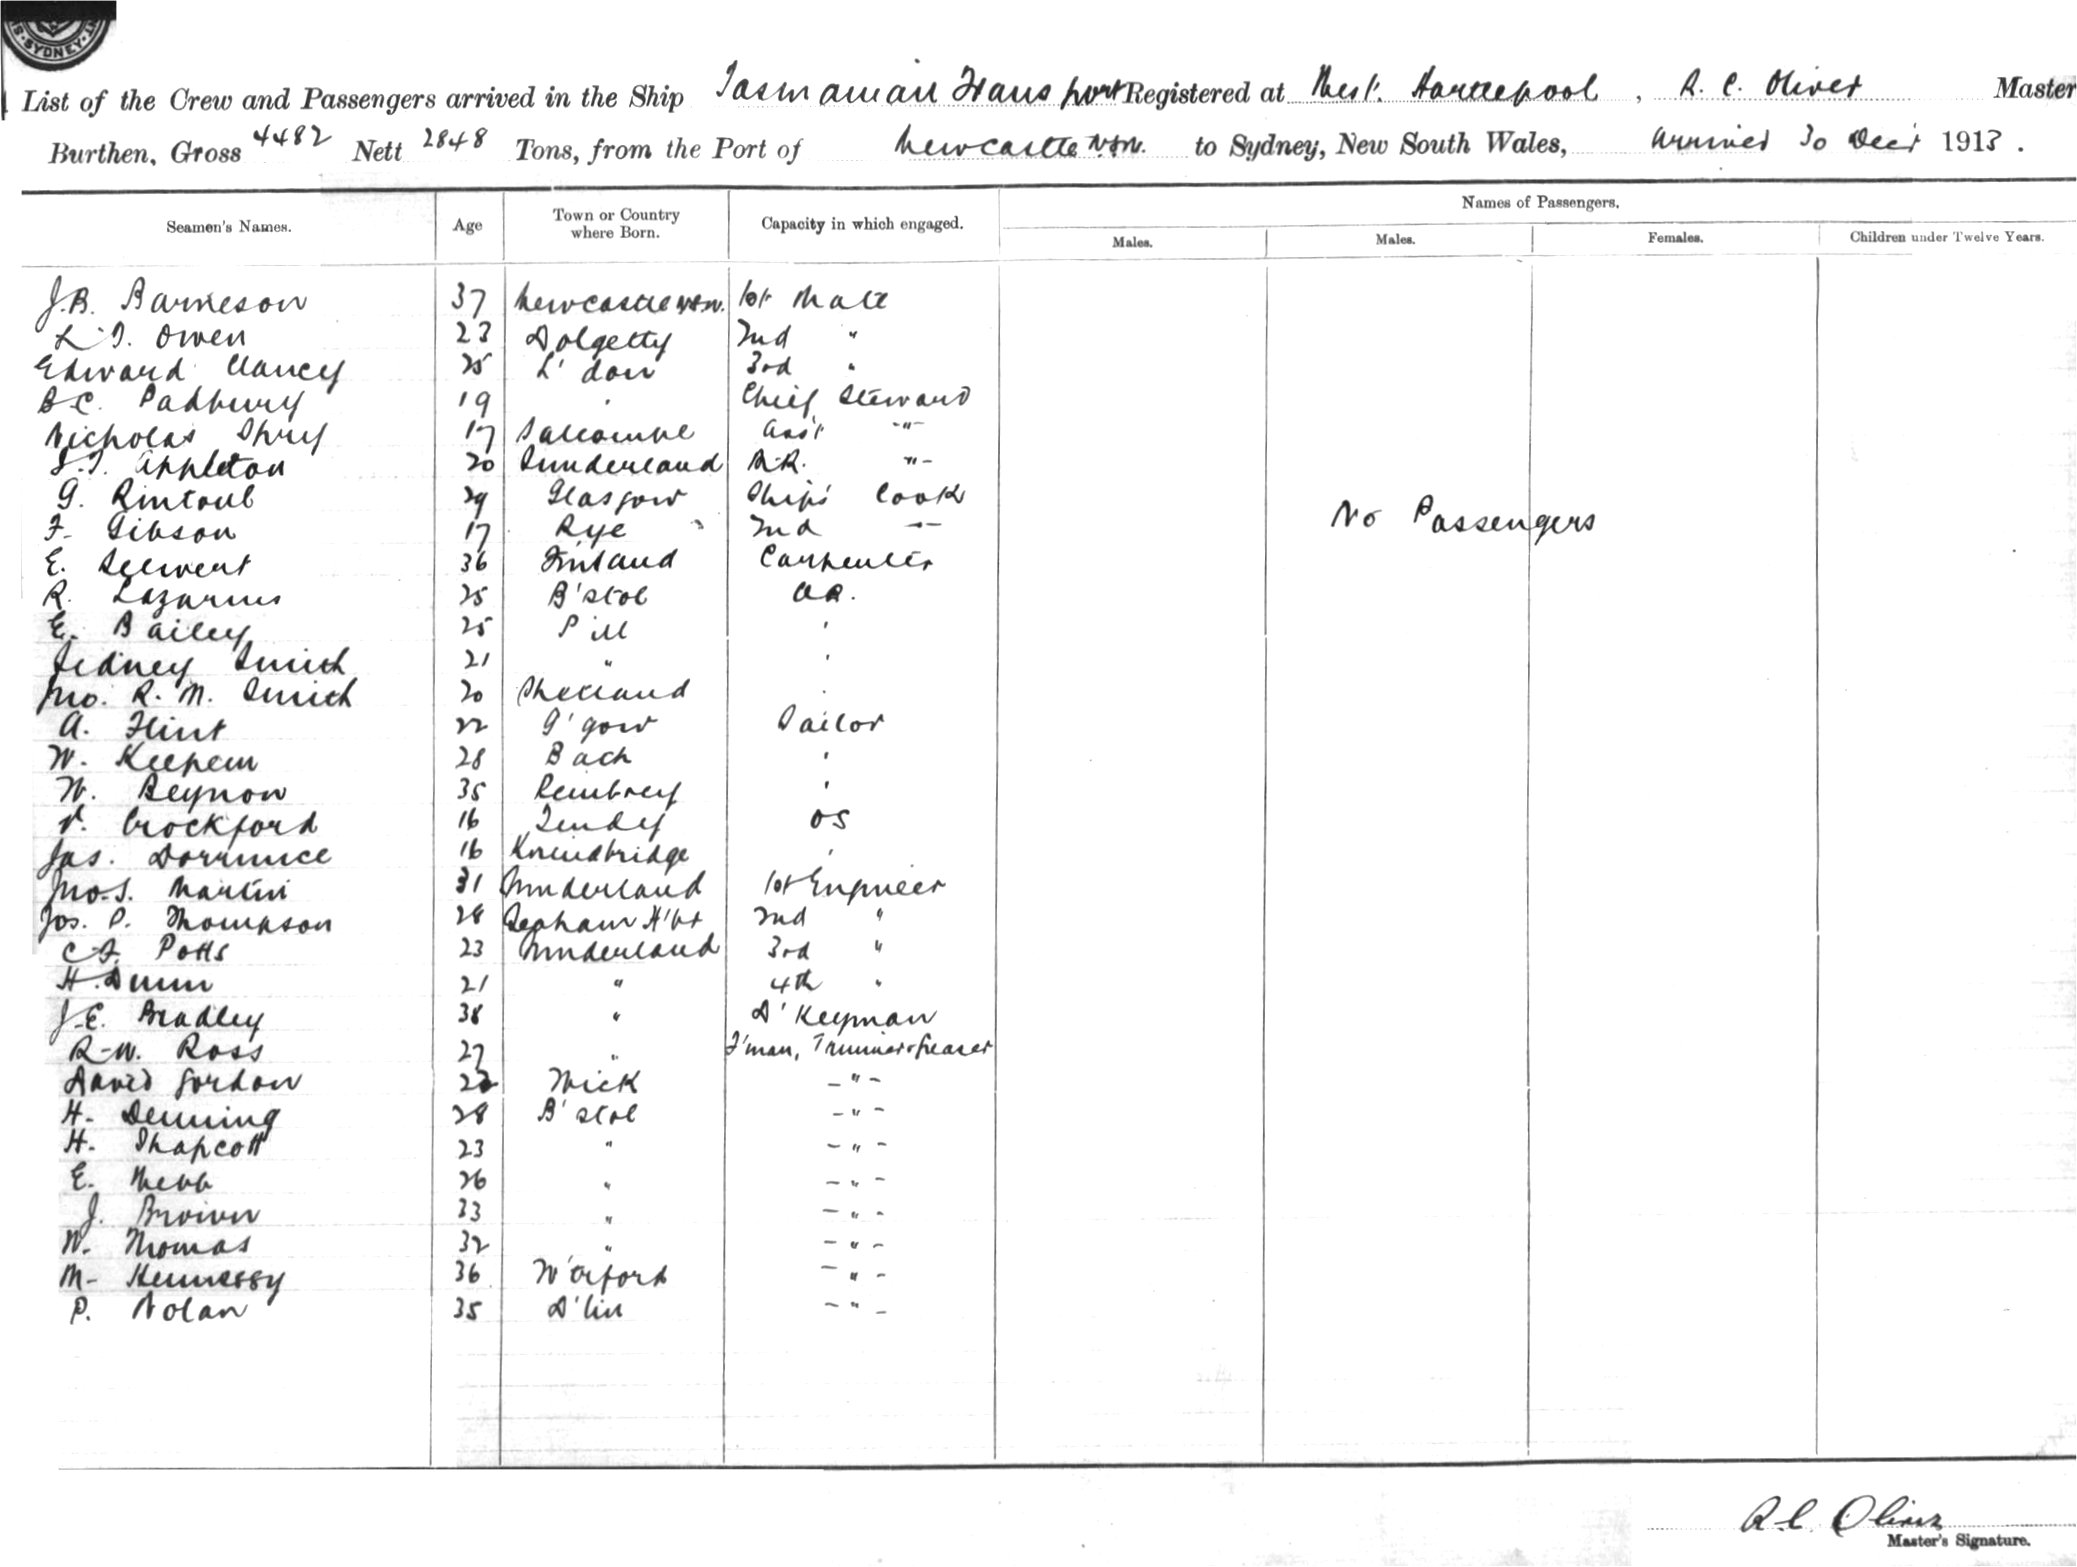 SYDNEY
List of the Crew and Passengers arrived in the Ship Tasmanian Transport Registered at West Hartlepool, R. C. Oliver Master
Burthen, Gross 4482 Nett 2848 Tons, from the Port of Newcastle NSW. to Sydney, New South Wales, arrived 30 Dec'r 1913.
Seamen's Names. Age Town or Country where Born. Capacity in which engaged. Names of Passengers.
Males. Males. Females. Children under Twelve Years.
J.B. Barneson 37 Newcastle NSW. 1st Mate
L. T. Owen 23 Dolgetty 2nd "
Edward Clancy 25 L'don 3rd "
B.C. Padbury 19 ' Chief Steward
Nicholas Spry 17 Salcombe Ass't -"-
J.T. Appleton 20 Sunderland M.R. "-
G. Rintoul 29 Glasgow Ship's Cook
No Passengers
F. Gibson 17 Rye 2nd -"-
E. 36 Finland Carpenter
R. Lazarus 25 B'stol A.B.
E. Bailey 25 Pill '
Sidney Smith 21 " '
Jno. R. M. Smith 20 Shetland '
A. Flint 22 G'gow Sailor
W. Keepem 28 Bach '
W. Beynon 35 Pembrey '
V. Crockford 16 OS
Jas. 16 '
Jno. S. Martin 31 Sunderland 1st Engineer
Jos. P. Thompson 28 Seaham H'br 2nd "
C.F. Potts 23 Sunderland 3rd "
H. Dunn 21 " 4th "
J.E. Bradley 38 " D'Keyman
R.W. Ross 27 " F'man, Trimmer & Greaser
David Gordon 22 Wick -"-
H. Denning 28 B'stol -"-
H. Shapcott 23 " -"-
E. Webb 26 " -"-
J. Brown 33 " -"-
W. Thomas 32 " -"-
M. Hennessy 36 W'erford -"-
P. Nolan 35 D'lin -"-
R.C. Oliver
Master's Signature.